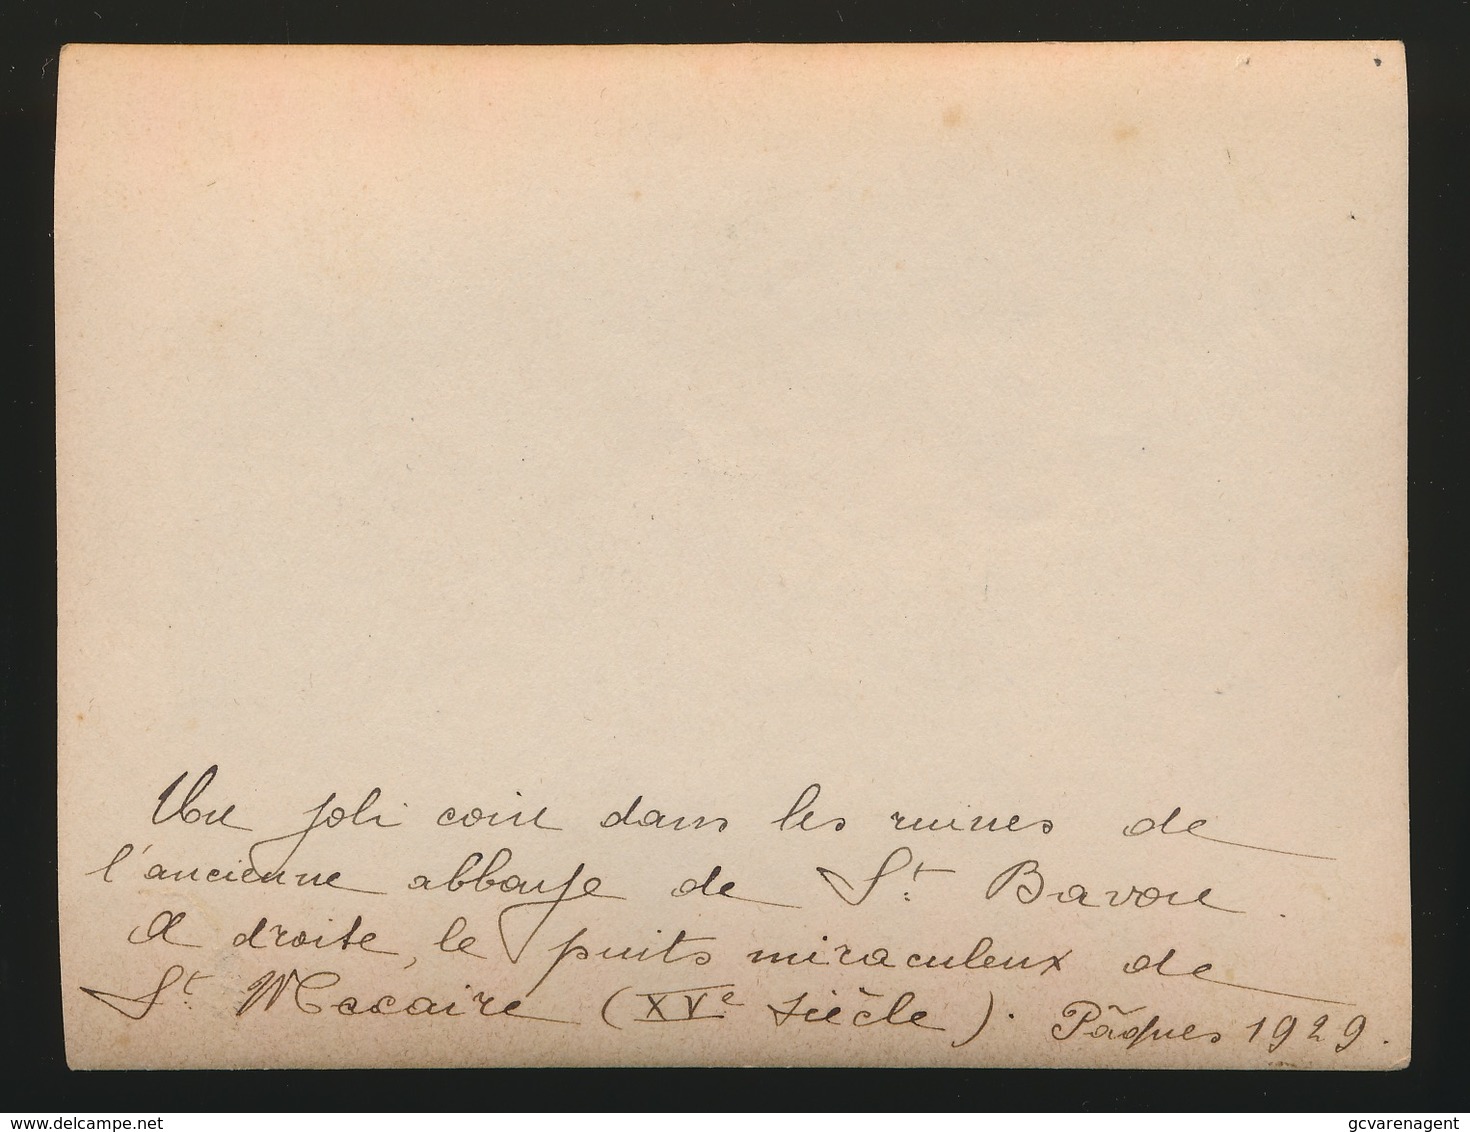 Un joli coin dans les ruines de
l'ancienne abbaye de St. Bavon.
A droite, le puits miraculeux de
St. Macaire (XVe siècle). Pâques 1929.
www.delcampe.net
gcvarenagent